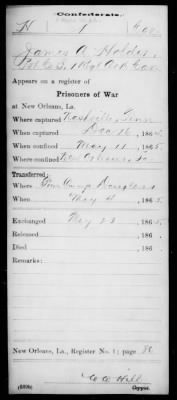 Confederate.
H 1
James A Holder
Appears on a register of
Prisoners of War
at New Orleans, La.
Where captured Nashville, Tenn
When captured Dec 16, 186
When confined May 11, 1865
Where confined New Orleans, La
Transferred:
From Camp Douglas
When May 4, 1865
Exchanged May 23, 1865
Released , 186
Died , 186
Remarks:
New Orleans, La., Register No. 1; page 80
Hill
Copyist.